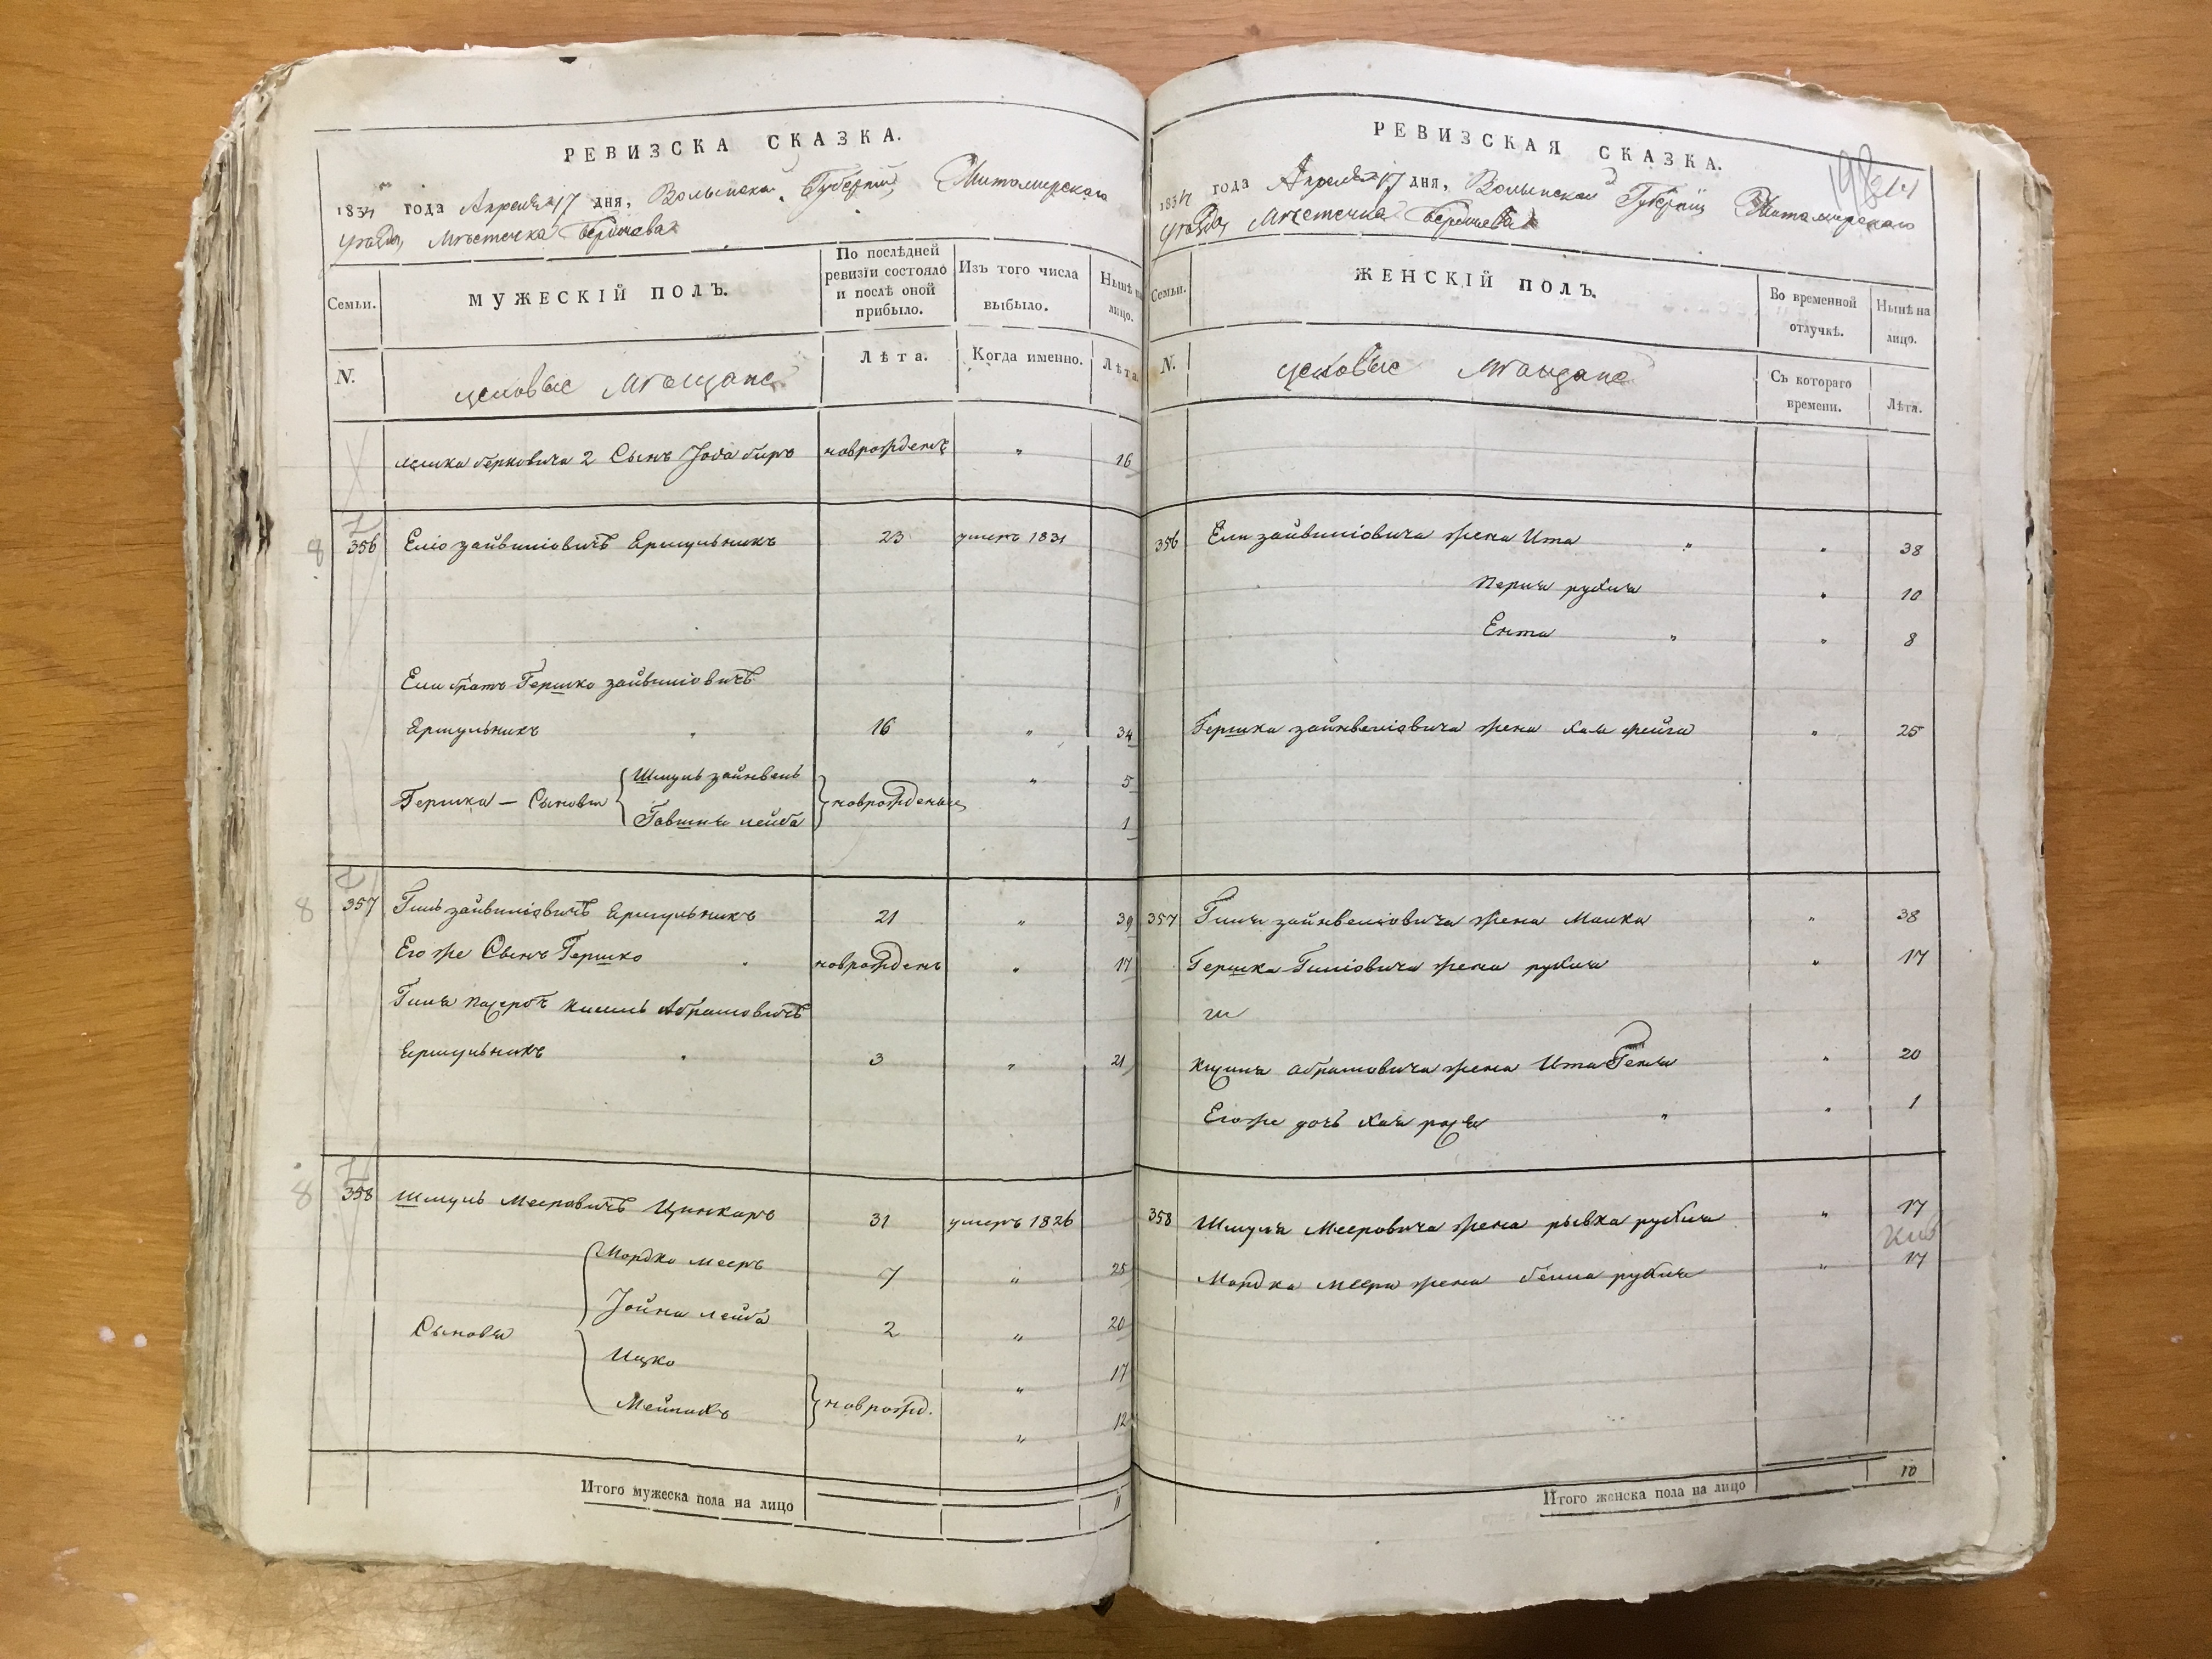 РЕВИЗСКА СКАЗКА.
1834 года Апреля 17 дня, Волынской Губерніи Житомирскаго
уѣзда, Мѣстечка Бердичева
Семьи.
МУЖЕСКІЙ ПОЛЪ.
По послѣдней ревизіи состояло и послѣ оной прибыло.
Изъ того числа выбыло.
Нынѣ на лицо.
N.
цеховые Мѣщане
Лѣта.
Когда именно.
Лѣта
берковича 2 Сынъ новрожденъ " 16
356 Еліо зайвиліовичъ Ермульникъ 23 умеръ 1831
Ели братъ Гершко зайвиліовичъ
Ермульникъ " 16 " 34
Шмуль зайнвель " 5
Гершка — Сыновья новрожденые
Говшия лейба 1
357 Гиль зайвиліовичъ Ермульникъ 21 " 39
Его же Сынъ Гершко " новрожденъ " 17
Гиля пасербъ Кисиль Абрамовичъ
Ермульникъ " 3 " 21
358 Шмуль Мееровичъ Цинкаръ 31 умеръ 1826
Мордко Мееръ 7 " 25
Іойна лейба 2 " 20
Сыновья
Ицко " 17
новрожд.
" 12
Итого мужеска пола на лицо 11
РЕВИЗСКАЯ СКАЗКА.
1834 года Апреля 17 дня, Волынской Губерніи Житомирскаго
уѣзда Мѣстечка Бердичева
Семьи.
ЖЕНСКІЙ ПОЛЪ.
Во временной отлучкѣ.
Нынѣ на лицо.
N.
цеховые Мѣщане
Съ котораго времени.
Лѣта.
356 Ели зайвиліовича жена Ита " " 38
Перля рухля " 10
Ента " " 8
Гершка зайнвеліовича жена хая фейга " 25
357 Гиля зайнвеліовича жена Малка " 38
Гершка Гиліовича жена рухля " 17
Абрамовича жена Ита Геня " 20
Его же дочь хая " " 1
358 Шмуля Мееровича жена рывка рухля " 17
Мордка Меера жена бейла рухля " 17
Итого женска пола на лицо 10